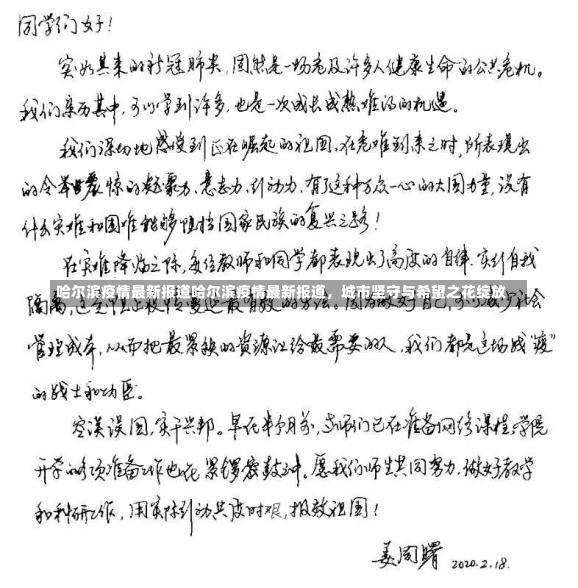 同学们女子!
突如其来的新冠肺炎,固然是一场危及许多人健康生命的公共危机。
我们亲历其中,可以学到许多,也是一次成长成熟难得的机遇。
我们深切地感受到正在崛起的祖国,在危难到来之时,所表现出
的令举世震惊的凝聚力、意志力、引动力,有了这种万众一心的大国力量,没有
什么灾难和困难能够阻挡国家民族的复兴之路!
在灾难降临之际,每位教师和同学都表现出了高度的自律,实行自我
隔离,
哈尔滨疫情最新报道哈尔滨疫情最新报道,城市坚守与希望之花绽放
社会
管理成本,从而把最紧缺的资源让给最需要的人,我们都是这场战“疫”
的战士和功臣。
空谈误国,实干兴邦。早在半个月前,老师们已在准备网络课程,学院
开学的各项准备工作也在紧锣密鼓中。愿我们师生共同努力,做好教学
和科研工作,用实际行动共度时艰,报效祖国!
姜周曙 2020.2.18.